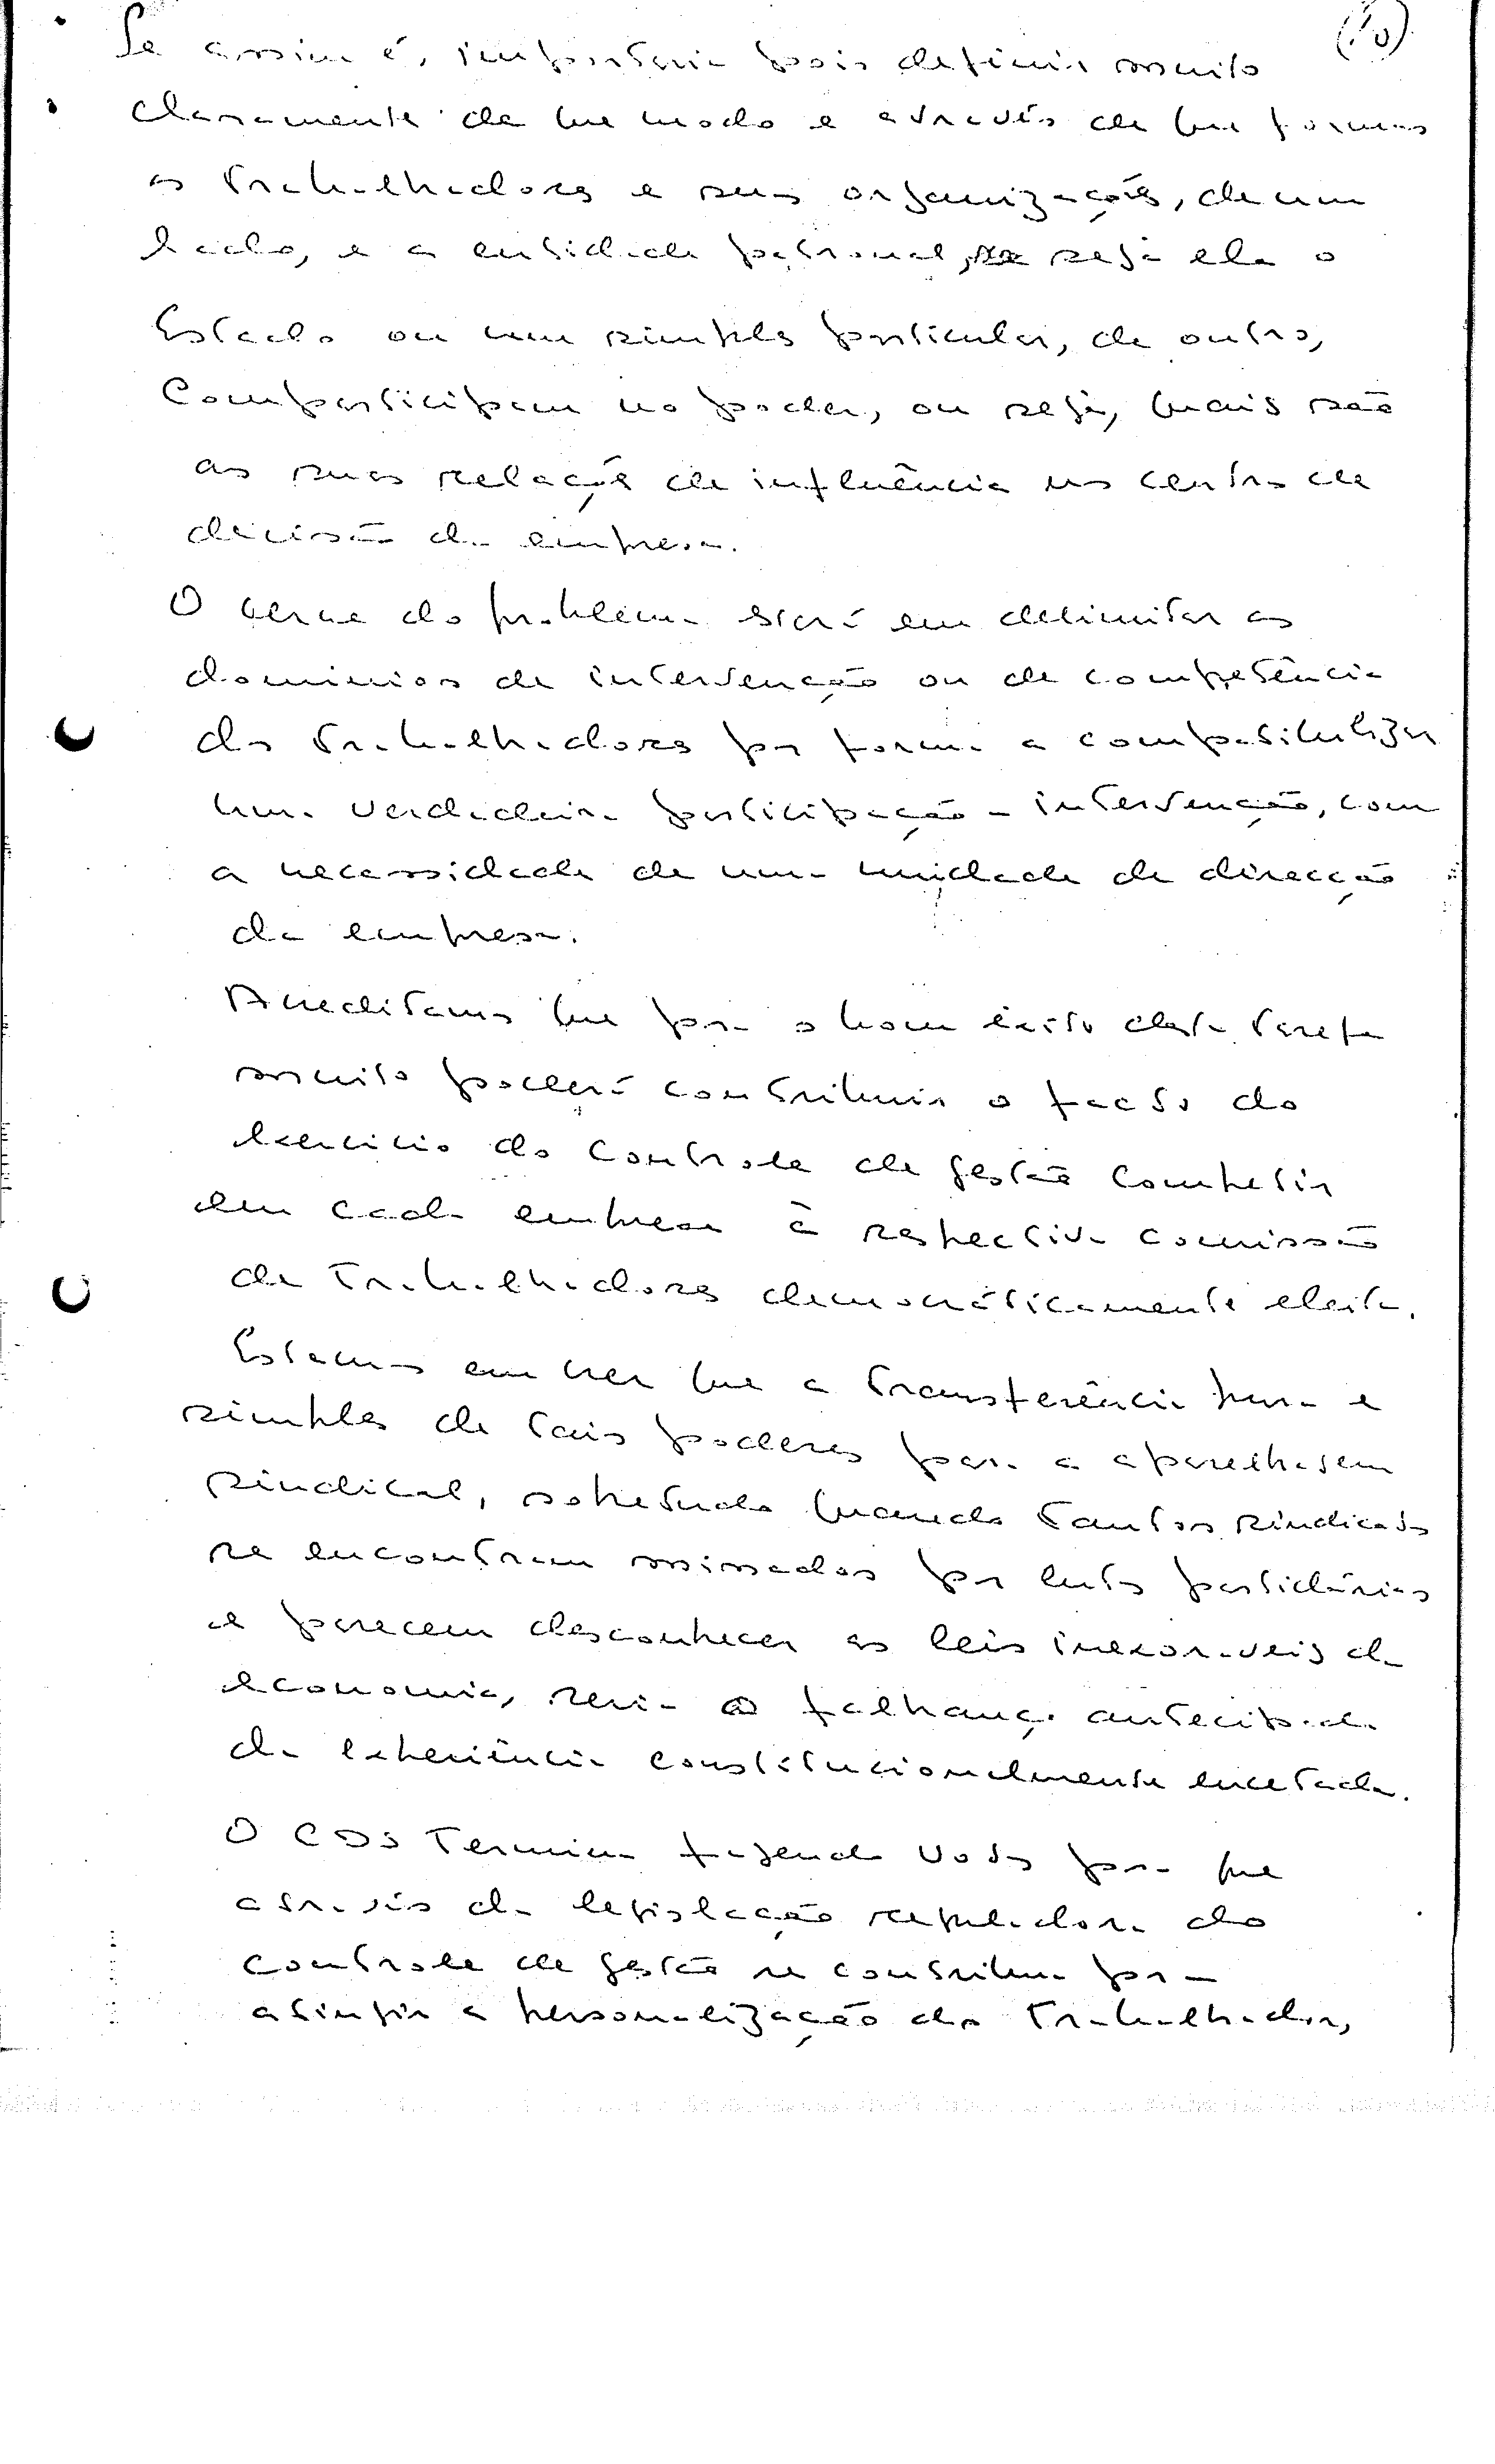 (10)
Se assim é, importaria pois definir muito
claramente de que modo e através de que formas
os trabalhadores e suas organizações, de um
lado, e a entidade patronal, seja ela o
Estado ou um simples particular, de outro,
comparticipam no poder, ou seja, quais são
as suas relações de influência no centro de
decisão da empresa.
O cerne do problema está em delimitar os
dominios de intervenção ou de competência
dos trabalhadores por forma a compatibilizar
uma verdadeira participação - intervenção, com
a necessidade de uma unidade de direcção
da empresa.
Acreditamos que para o bom êxito desta tarefa
muito poderá contribuir o facto do
exercicio do controle de gestão competir
em cada empresa à respectiva comissão
de Trabalhadores democráticamente eleita.
Estamos em crer que a transferência pura e
simples de tais poderes para a aparelhagem
sindical, sobretudo quando tantos sindicatos
se encontram minados por lutas partidárias
e parecem desconhecer as leis inexoraveis da
economia, seria o falhanço antecipado
da experiência constitucionalmente encetada.
O CDS termina fazendo votos para que
através da legislação reguladora do
controle de gestão se contribua para
atingir a personalização do Trabalhador,